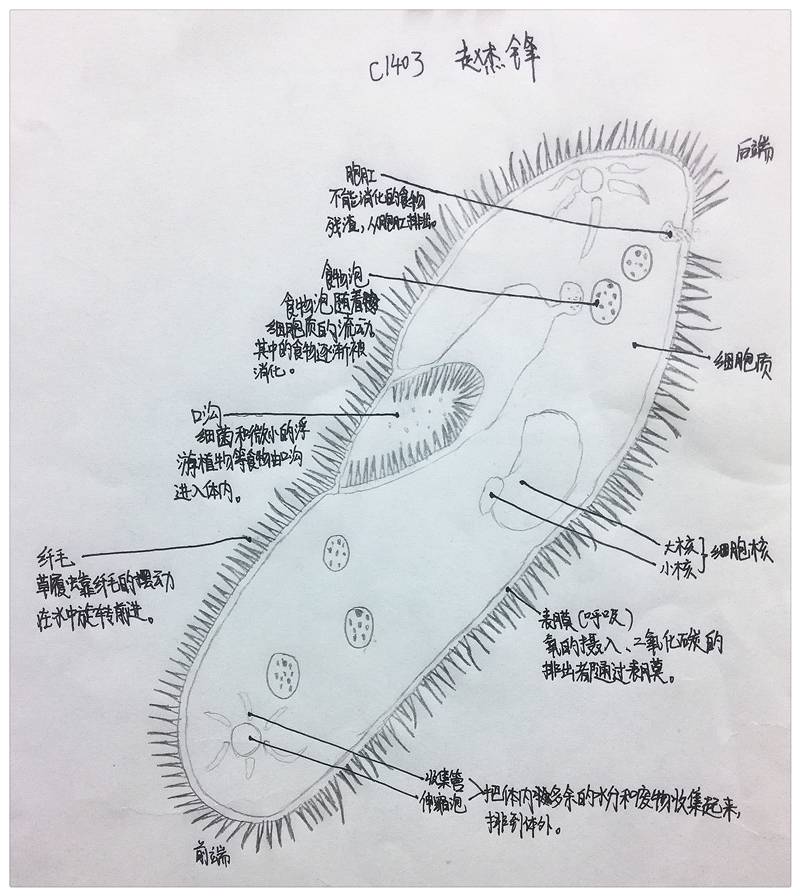 C1403 赵杰锋
后端
胞肛
不能消化的食物
残渣，从胞肛排出。
食物泡
食物泡随着
细胞质的流动，
其中的食物逐渐被
消化。
细胞质
口沟
细菌和微小的浮
游植物等食物由口沟
进入体内。
大核
小核
细胞核
纤毛
草履虫靠纤毛的摆动
在水中旋转前进。
表膜（呼吸）
氧的摄入、二氧化碳的
排出都通过表膜。
收集管
伸缩泡
把体内多余的水分和废物收集起来，
排到体外。
前端